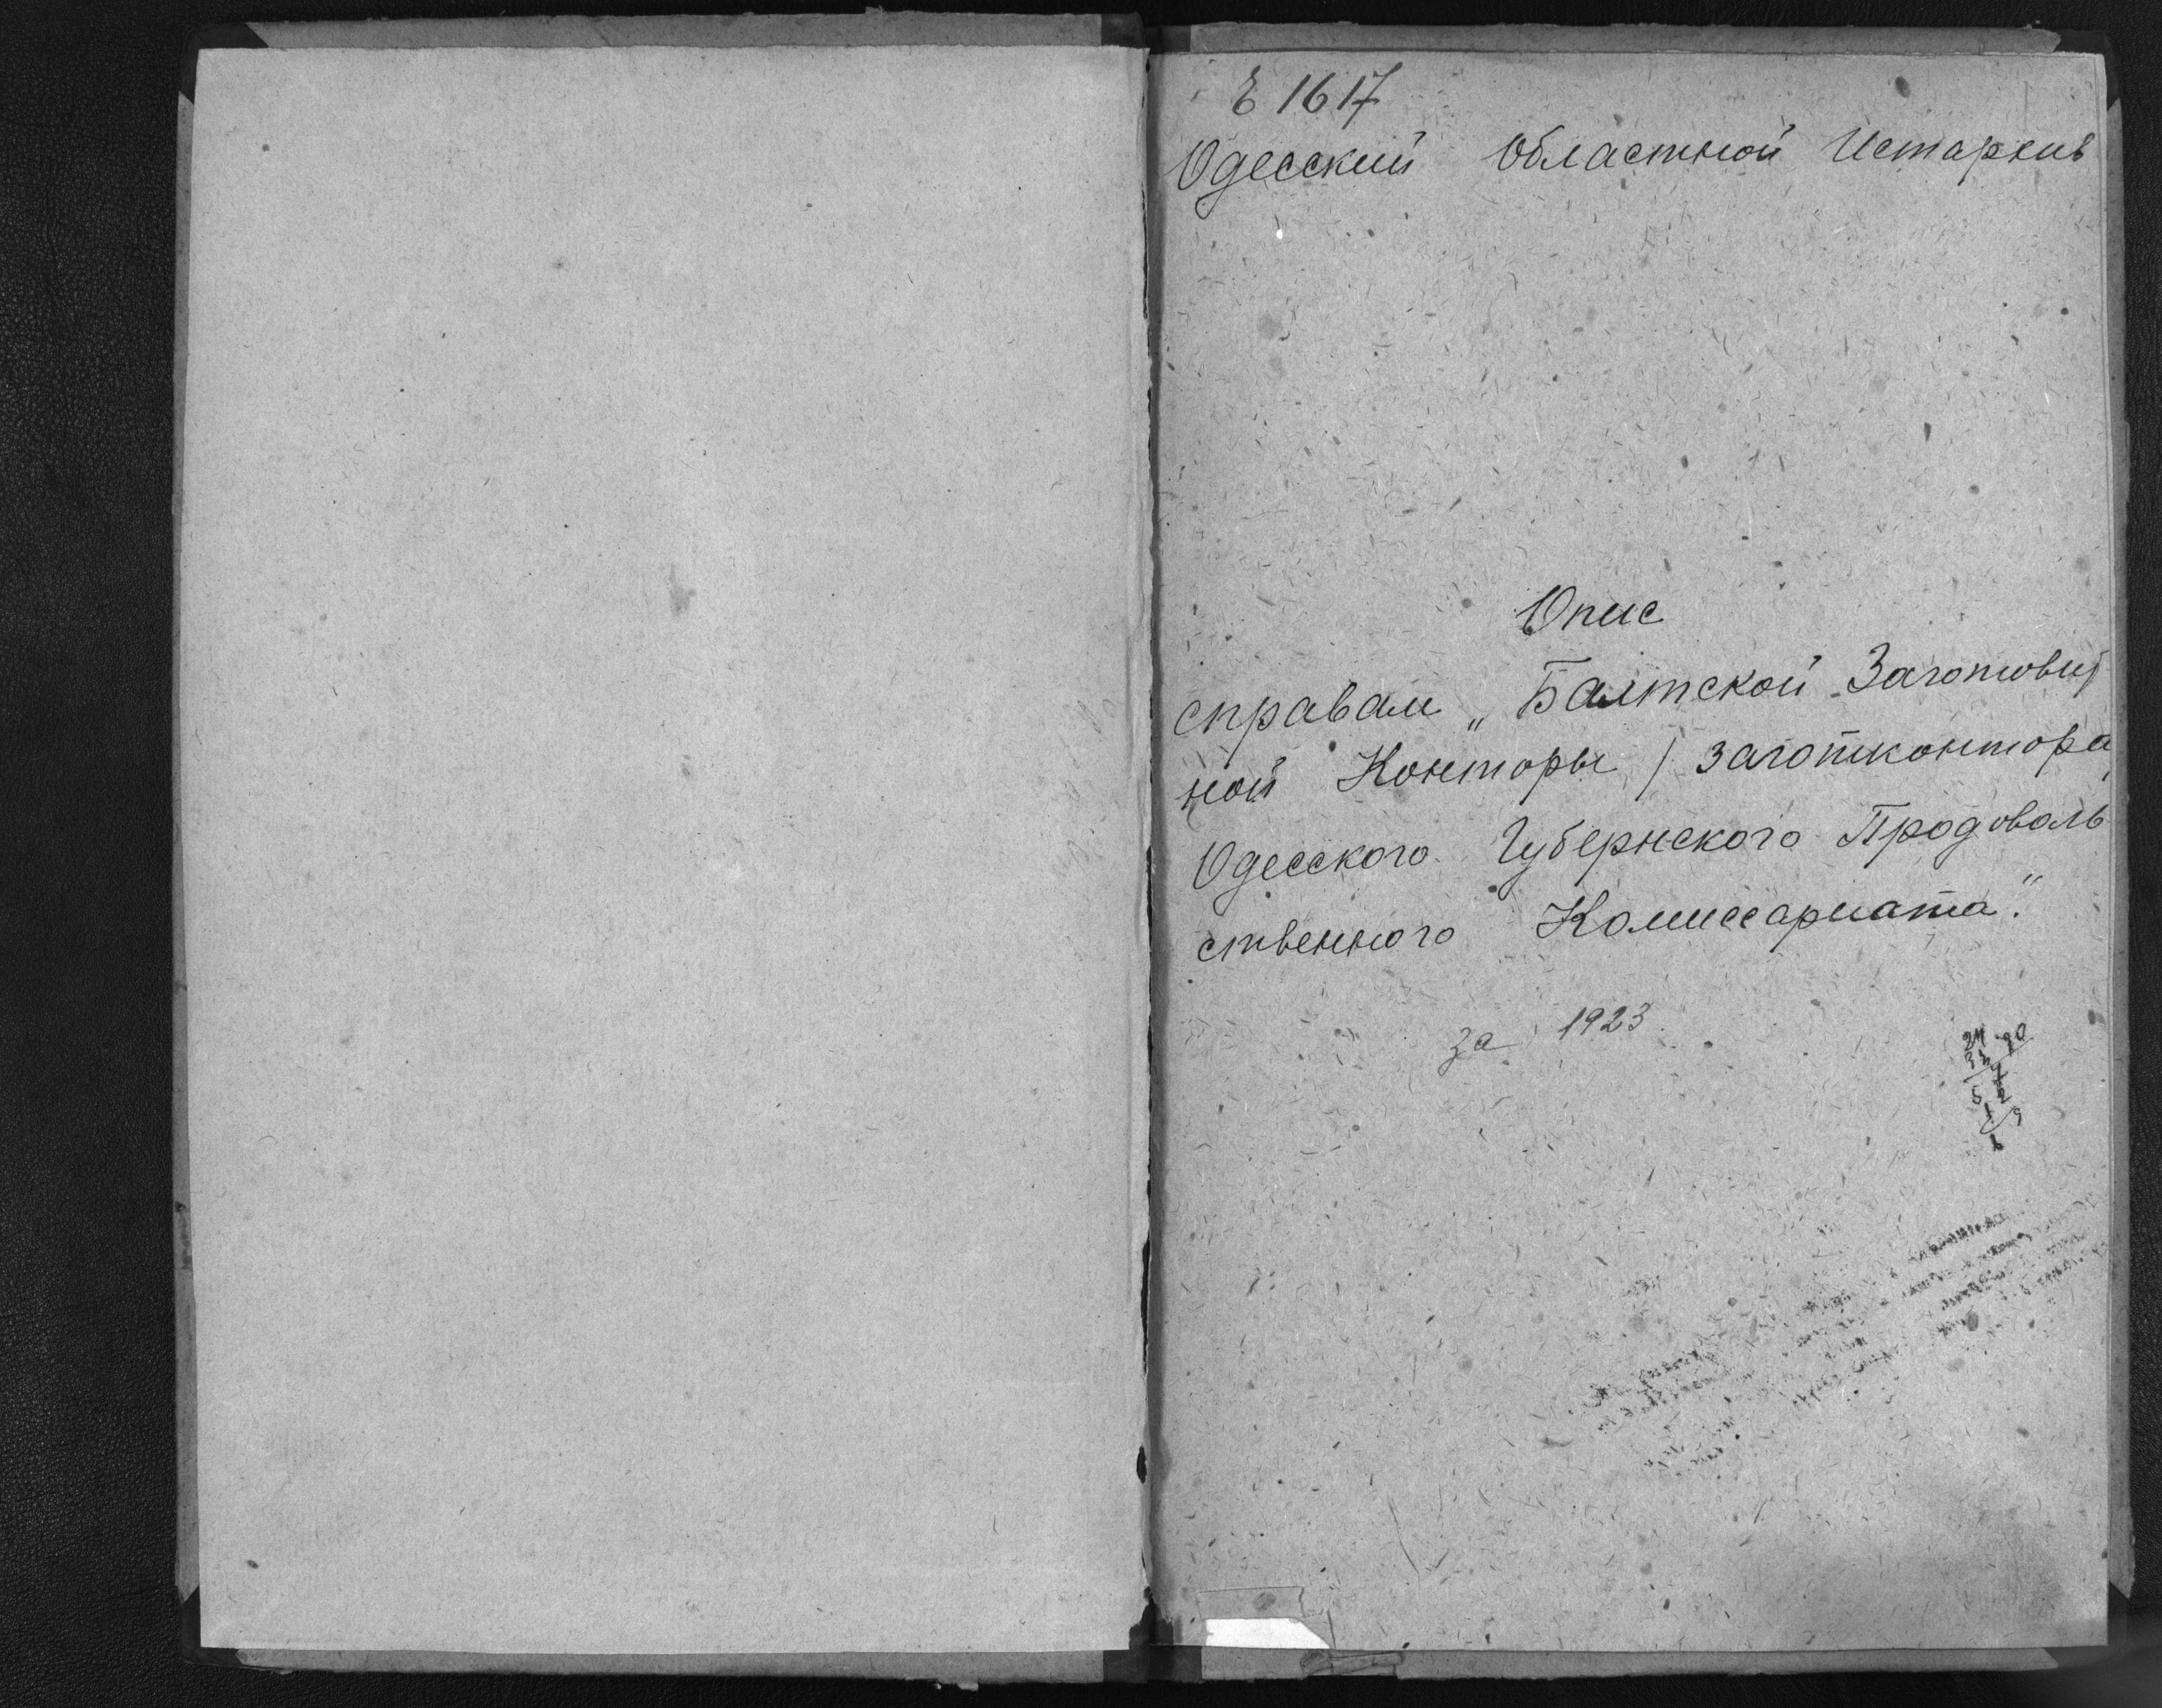 Е 1617
Одесский Областной Истархив
Опис
справам „Балтской Заготовит
ной Конторы / заготконтора
Одесского Губернского Продоволь
ственного Комиссариата".
за 1923